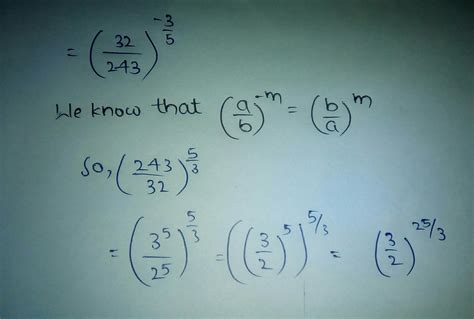 = (32/243)^(-3/5)
We know that (a/b)^(-m) = (b/a)^m
So, (243/32)^(5/3)
= (3^5/2^5)^(5/3) = ((3/2)^5)^(5/3) = (3/2)^(25/3)